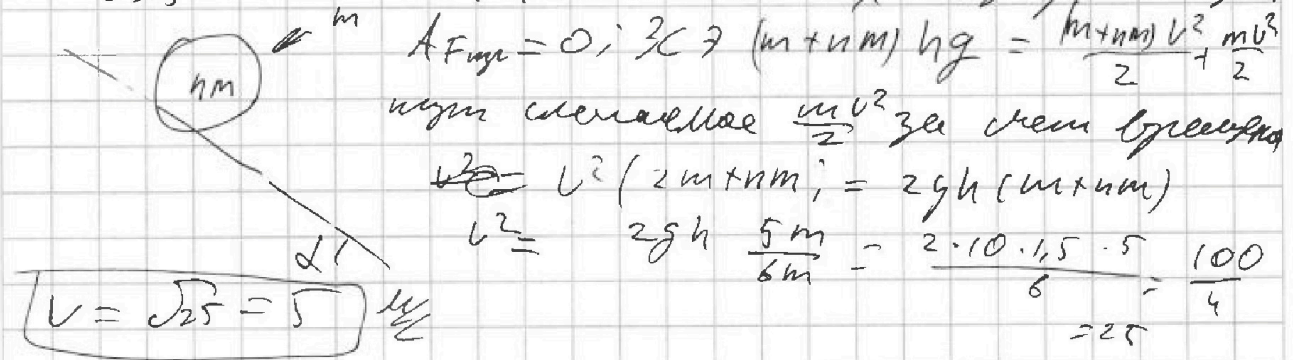 m
nm
A Fтр = 0; ЗСЭ (m+nm) hg = (m+nm) v²/2 + mv²/2
слагаемое mv²/2 за счет вращения
v²(2m+nm) = 2gh(m+nm)
v² = 2gh 5m/6m = 2·10·1,5·5/6 = 100/4
= 25
α
V = √25 = 5 м/с